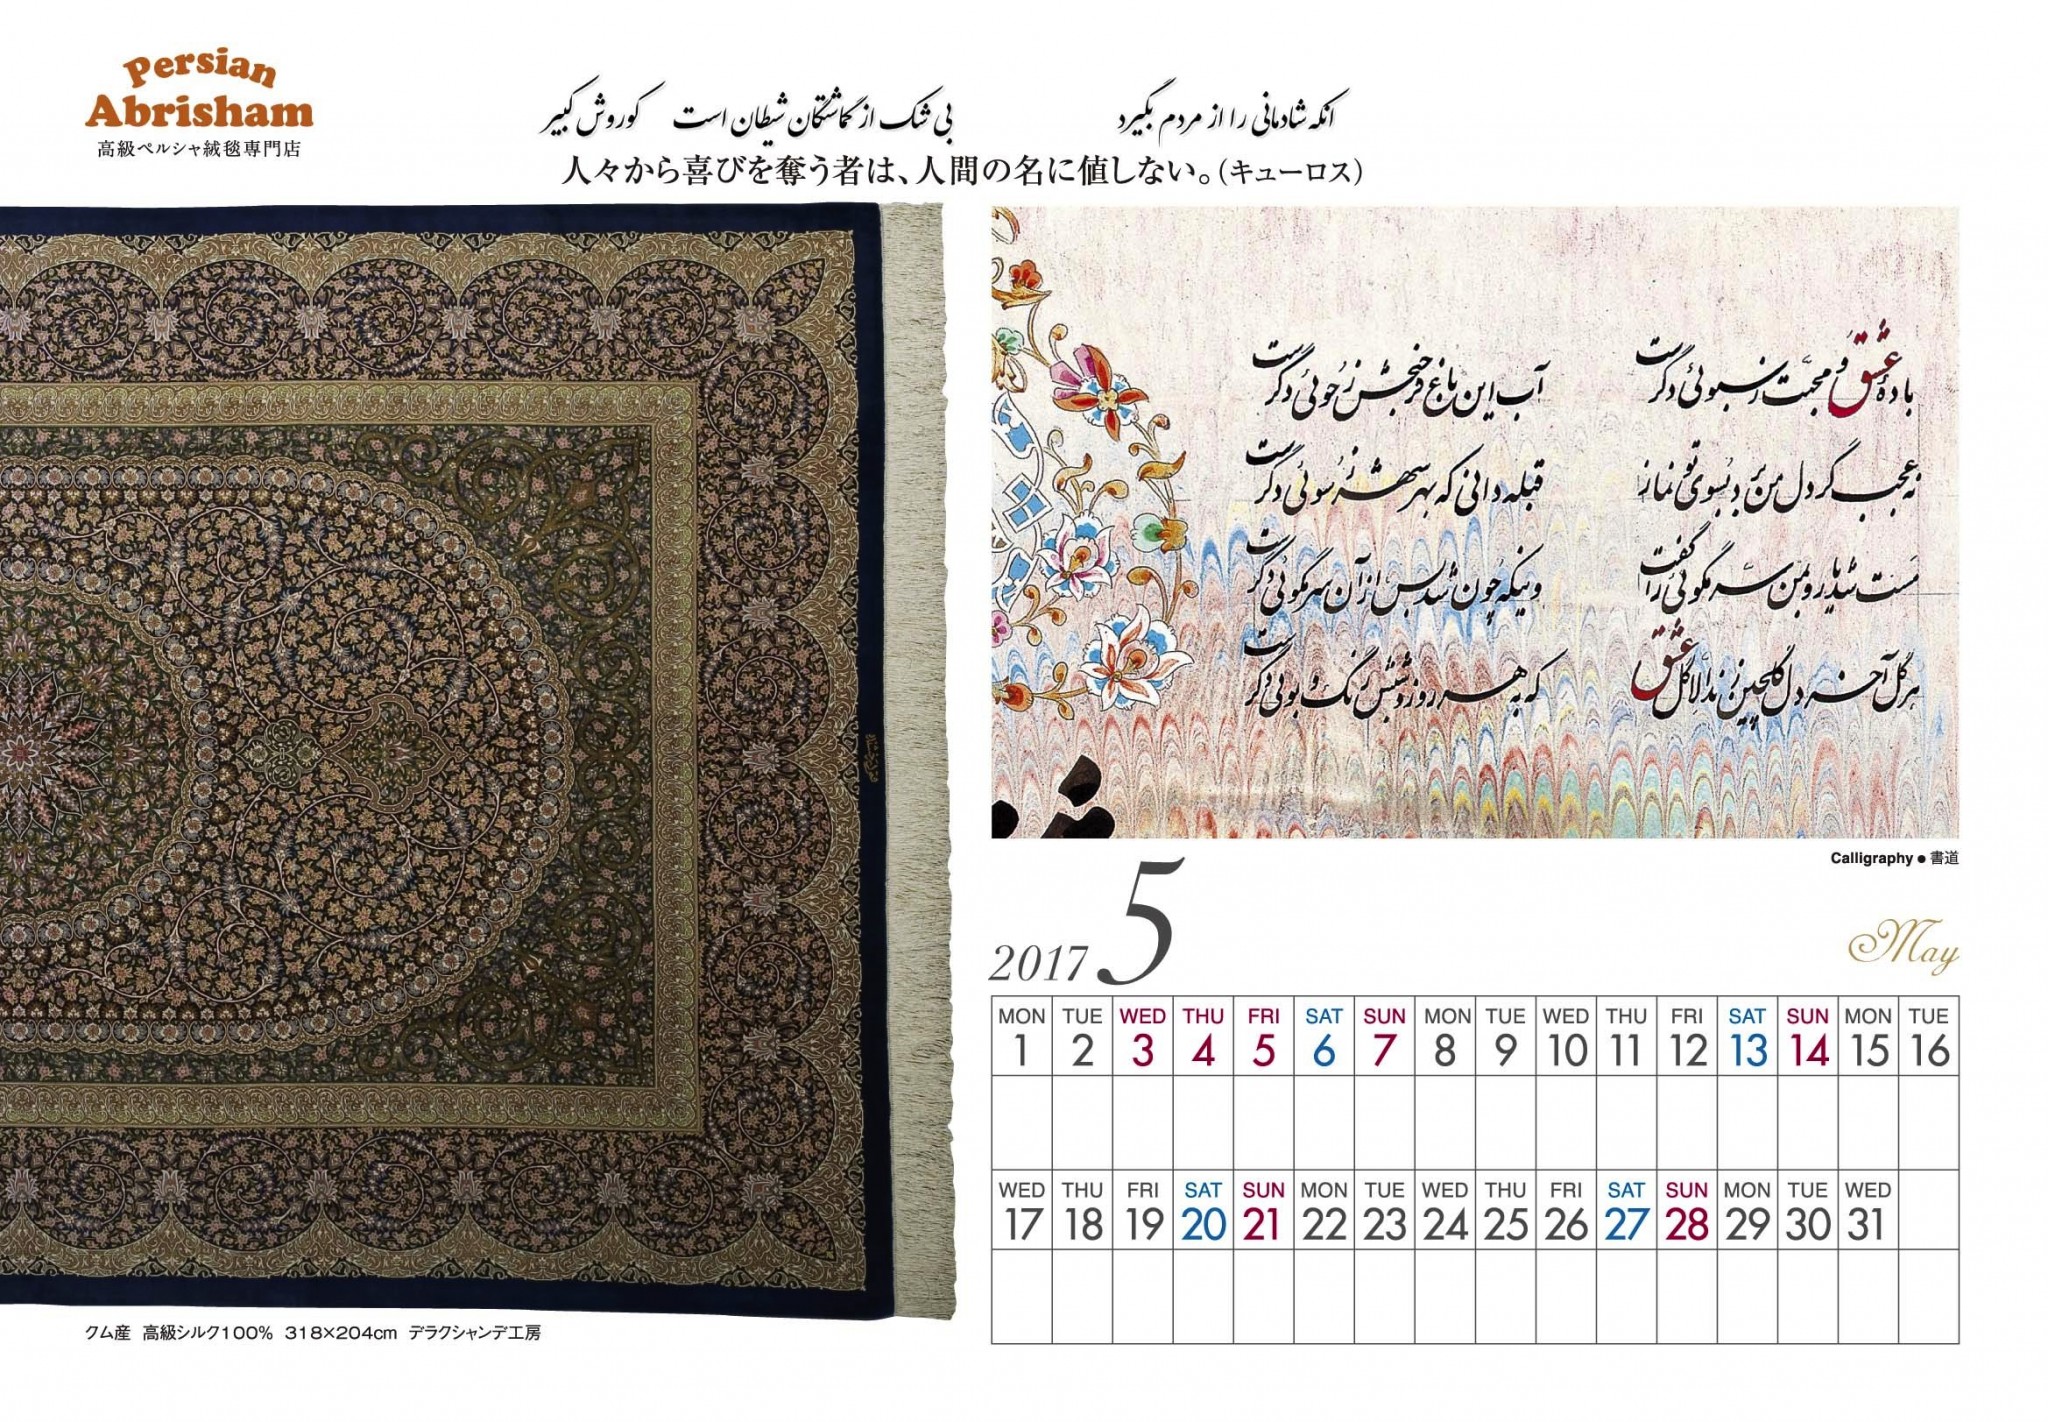 Persian
Abrisham
高級ペルシャ絨毯専門店
انکه شادمانی را از مردم بگیرد بی شک از گماشتگان شیطان است کوروش کبیر
人々から喜びを奪う者は、人間の名に値しない。(キューロス)
بادهٔ عشق و محبت ز سبوئی دگرست
آب این باغ فرحبخش ز جوئی دگرست
نه عجب گر دل من برد بسوی تو نماز
قبله دانی که بهر شهر ز سوئی دگرست
مست شد یار و بمن سر مگوئی را گفت
وینکه چون شد پس از آن سر مگوئی دگرست
هر گل آخر دل گلچین زند الا گل عشق
که به هر روز و شبش رنگ و بوئی دگرست
Calligraphy ● 書道
2017 5 May
MON TUE WED THU FRI SAT SUN MON TUE WED THU FRI SAT SUN MON TUE
1 2 3 4 5 6 7 8 9 10 11 12 13 14 15 16
WED THU FRI SAT SUN MON TUE WED THU FRI SAT SUN MON TUE WED
17 18 19 20 21 22 23 24 25 26 27 28 29 30 31
クム産 高級シルク100% 318×204cm デラクシャンデ工房